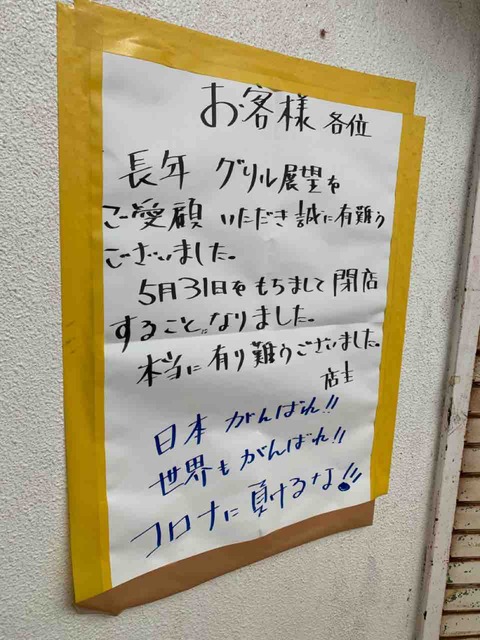 お客様 各位
長年 グリル展望を
ご愛顧 いただき誠に有難う
ございました。
5月31日をもちまして閉店
することになりました。
本当に有り難うございました。
店主
日本 がんばれ!!
世界もがんばれ!!
コロナに負けるな!!